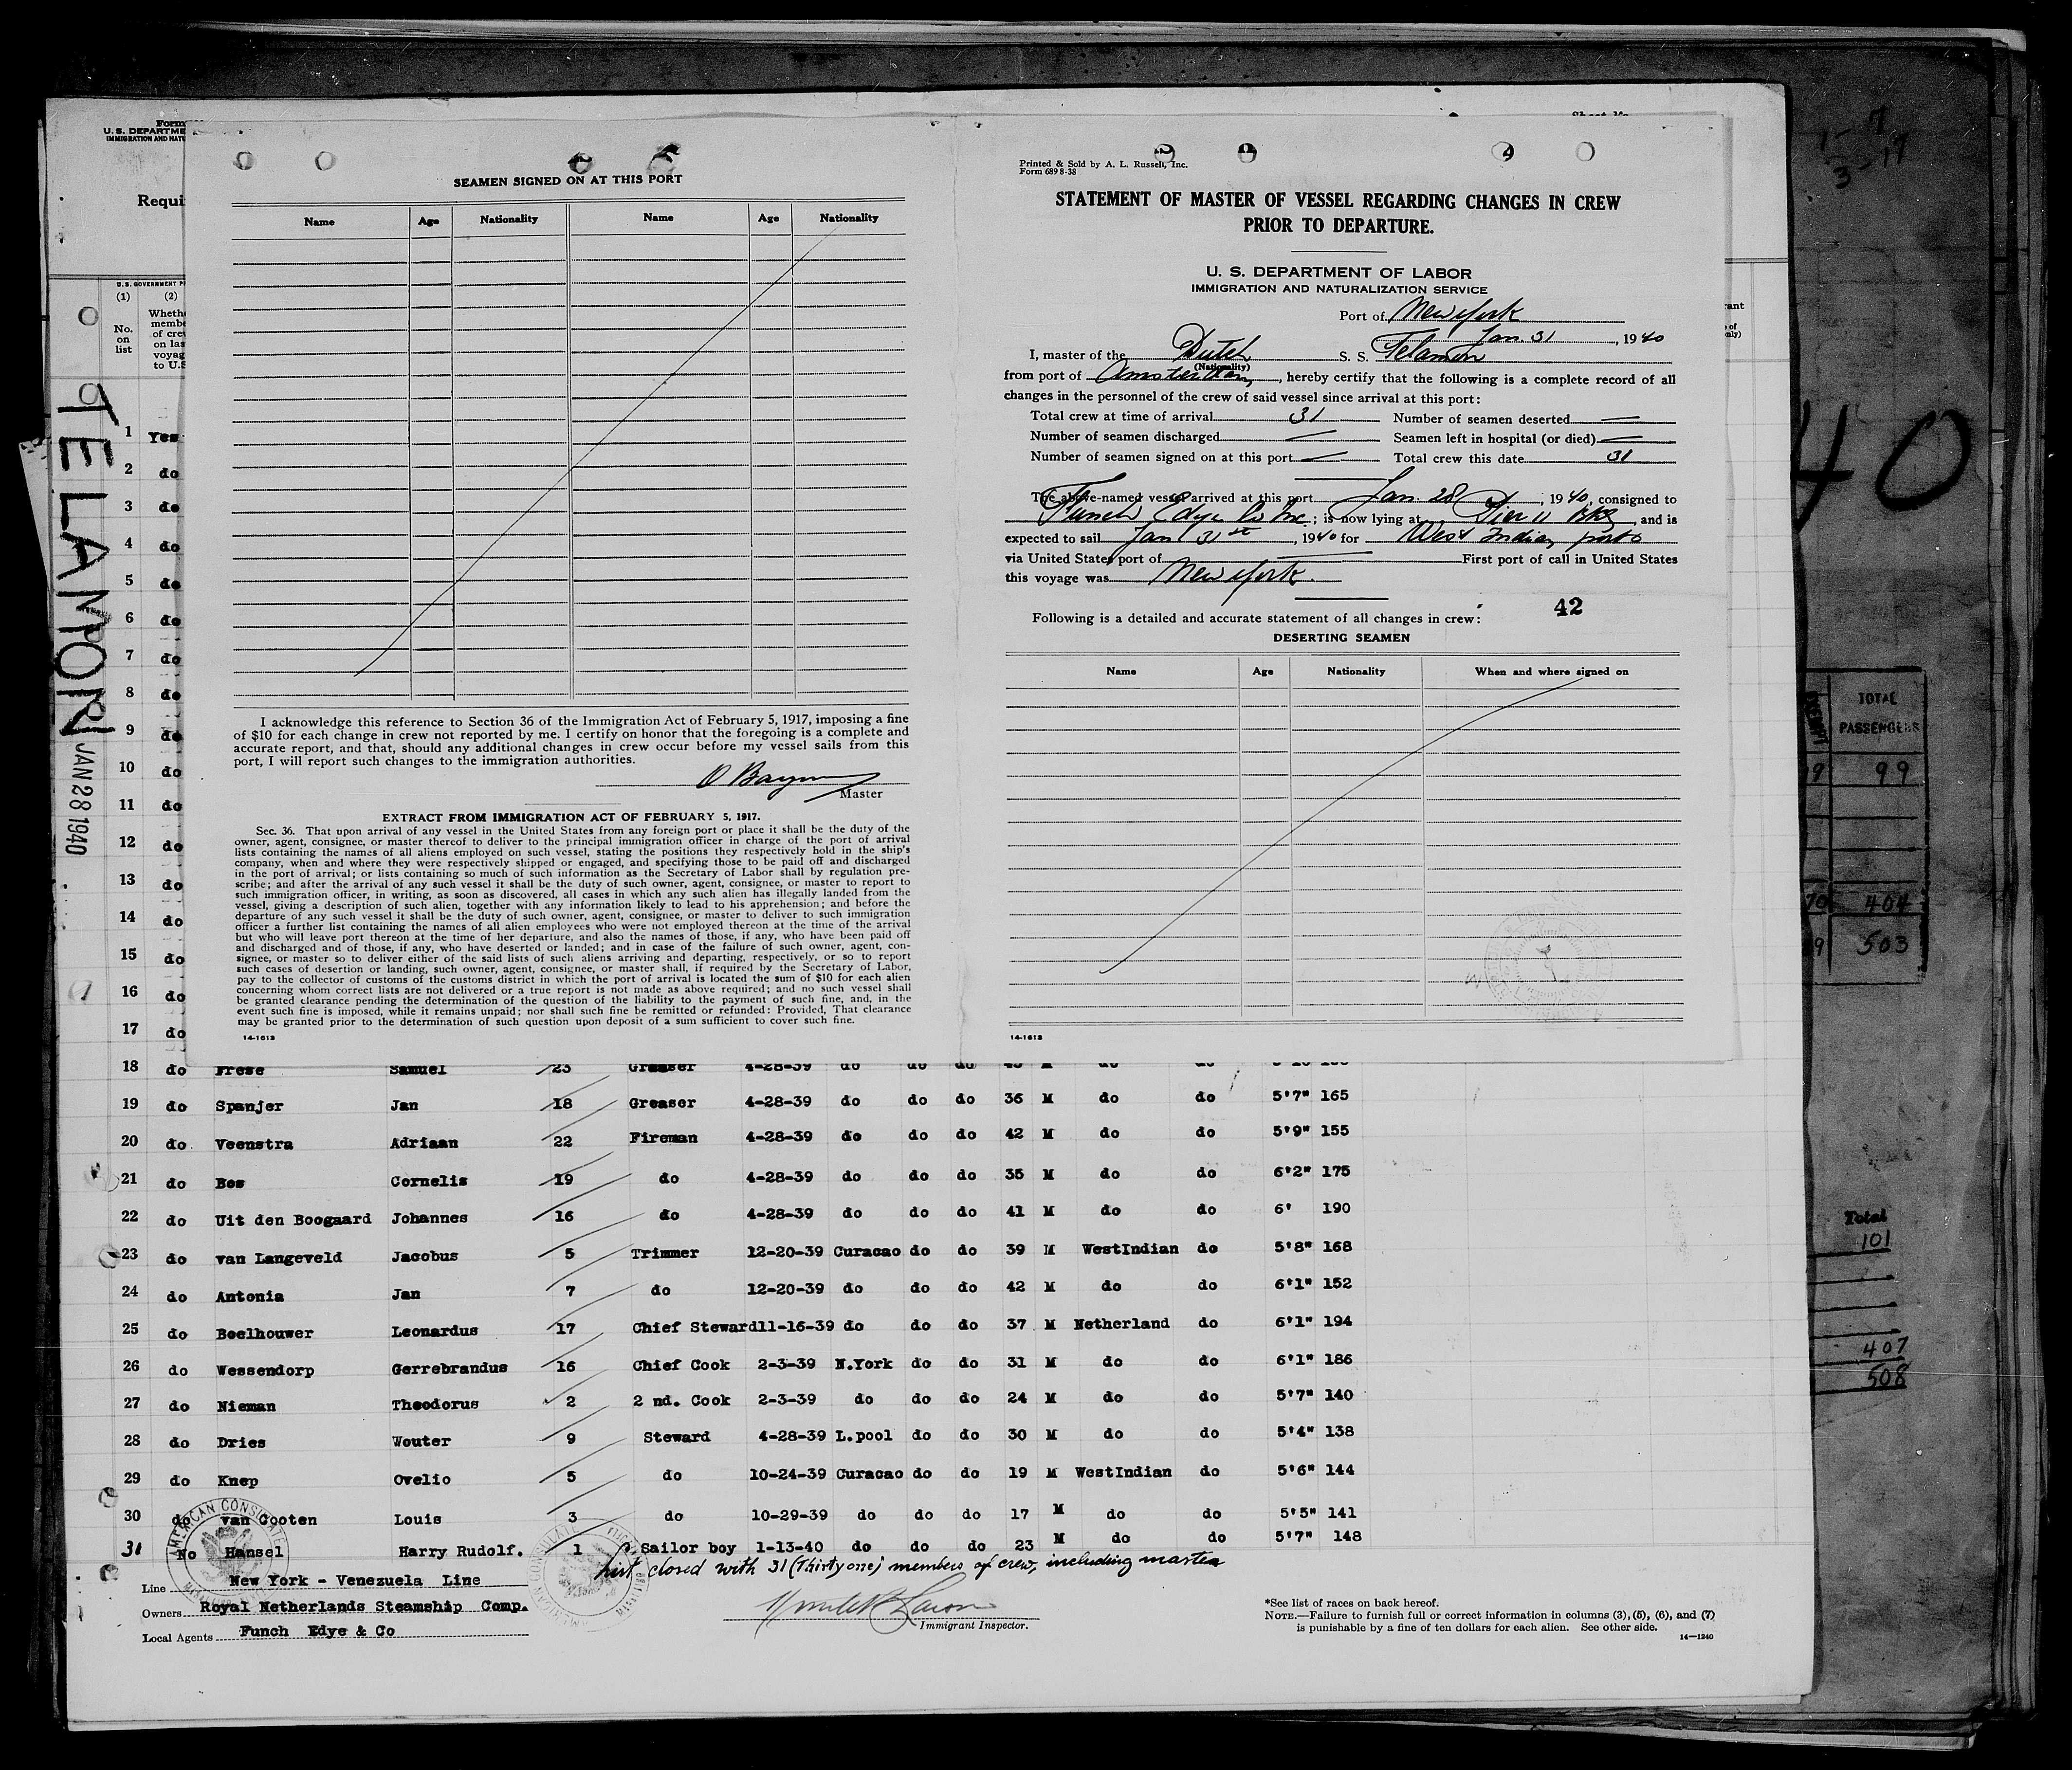 Form
U. S. DEPARTME
IMMIGRATION AND NATU
Requi
U. S. GOVERNMENT P
(1) (2)
No. on list
Wheth
membe
of crew
on las
voyag
to U.S
TELAMON JAN 28 1940
1 Yes
2 do
3 do
4 do
5 do
6 do
7 do
8 do
9 do
10 do
11 do
12 do
13 do
14 do
15 do
16 do
17 do
SEAMEN SIGNED ON AT THIS PORT
Name Age Nationality Name Age Nationality
I acknowledge this reference to Section 36 of the Immigration Act of February 5, 1917, imposing a fine
of $10 for each change in crew not reported by me. I certify on honor that the foregoing is a complete and
accurate report, and that, should any additional changes in crew occur before my vessel sails from this
port, I will report such changes to the immigration authorities.
Master
EXTRACT FROM IMMIGRATION ACT OF FEBRUARY 5, 1917.
Sec. 36. That upon arrival of any vessel in the United States from any foreign port or place it shall be the duty of the
owner, agent, consignee, or master thereof to deliver to the principal immigration officer in charge of the port of arrival
lists containing the names of all aliens employed on such vessel, stating the positions they respectively hold in the ship's
company, when and where they were respectively shipped or engaged, and specifying those to be paid off and discharged
in the port of arrival; or lists containing so much of such information as the Secretary of Labor shall by regulation pre-
scribe; and after the arrival of any such vessel it shall be the duty of such owner, agent, consignee, or master to report to
such immigration officer, in writing, as soon as discovered, all cases in which any such alien has illegally landed from the
vessel, giving a description of such alien, together with any information likely to lead to his apprehension; and before the
departure of any such vessel it shall be the duty of such owner, agent, consignee, or master to deliver to such immigration
officer a further list containing the names of all alien employees who were not employed thereon at the time of the arrival
but who will leave port thereon at the time of her departure, and also the names of those, if any, who have been paid off
and discharged and of those, if any, who have deserted or landed; and in case of the failure of such owner, agent, con-
signee, or master so to deliver either of the said lists of such aliens arriving and departing, respectively, or so to report
such cases of desertion or landing, such owner, agent, consignee, or master shall, if required by the Secretary of Labor,
pay to the collector of customs of the customs district in which the port of arrival is located the sum of $10 for each alien
concerning whom correct lists are not delivered or a true report is not made as above required; and no such vessel shall
be granted clearance pending the determination of the question of the liability to the payment of such fine, and, in the
event such fine is imposed, while it remains unpaid; nor shall such fine be remitted or refunded: Provided, That clearance
may be granted prior to the determination of such question upon deposit of a sum sufficient to cover such fine.
14-1613
Printed & Sold by A. L. Russell, Inc.
Form 689 8-38
STATEMENT OF MASTER OF VESSEL REGARDING CHANGES IN CREW
PRIOR TO DEPARTURE.
U. S. DEPARTMENT OF LABOR
IMMIGRATION AND NATURALIZATION SERVICE
Port of New York
Jan. 31, 1940
I, master of the Dutch S. S. Telamon
(Nationality)
from port of Amsterdam, hereby certify that the following is a complete record of all
changes in the personnel of the crew of said vessel since arrival at this port:
Total crew at time of arrival 31 Number of seamen deserted —
Number of seamen discharged — Seamen left in hospital (or died) —
Number of seamen signed on at this port — Total crew this date 31
The above-named vessel arrived at this port Jan. 28, 1940, consigned to
Funch Edye Co Inc; is now lying at Pier 11 Bkg, and is
expected to sail Jan 31st, 1940 for West Indian ports
via United States port of First port of call in United States
this voyage was New York.
42
Following is a detailed and accurate statement of all changes in crew:
DESERTING SEAMEN
Name Age Nationality When and where signed on
14-1613
18 do Frese Samuel 23 Greaser 4-28-39 do do do M do do
19 do Spanjer Jan 18 Greaser 4-28-39 do do do 36 M do do 5'7" 165
20 do Veenstra Adriaan 22 Fireman 4-28-39 do do do 42 M do do 5'9" 155
21 do Bos Cornelis 19 do 4-28-39 do do do 35 M do do 6'2" 175
22 do Uit den Boogaard Johannes 16 do 4-28-39 do do do 41 M do do 6' 190
23 do van Langeveld Jacobus 5 Trimmer 12-20-39 Curacao do do 39 M WestIndian do 5'8" 168
24 do Antonia Jan 7 do 12-20-39 do do do 42 M do do 6'1" 152
25 do Beelhouwer Leonardus 17 Chief Steward 11-16-39 do do do 37 M Netherland do 6'1" 194
26 do Wessendorp Gerrebrandus 16 Chief Cook 2-3-39 N.York do do 31 M do do 6'1" 186
27 do Nieman Theodorus 2 2 nd. Cook 2-3-39 do do do 24 M do do 5'7" 140
28 do Dries Wouter 9 Steward 4-28-39 L.pool do do 30 M do do 5'4" 138
29 do Knep Ovelio 5 do 10-24-39 Curacao do do 19 M WestIndian do 5'6" 144
30 do van Gooten Louis 3 do 10-29-39 do do do 17 M do do 5'5" 141
31 No Hansel Harry Rudolf. 1 Sailor boy 1-13-40 do do do 23 M do do 5'7" 148
List closed with 31 (Thirty one) members of crew, including master
AMERICAN CONSULATE
Line New York - Venezuela Line
Owners Royal Netherlands Steamship Comp.
Local Agents Funch Edye & Co
Immigrant Inspector.
*See list of races on back hereof.
NOTE.—Failure to furnish full or correct information in columns (3), (5), (6), and (7)
is punishable by a fine of ten dollars for each alien. See other side.
14—1240
1-7
3-17
40
TOTAL
PASSENGERS
99
404
503
Total
101
407
508